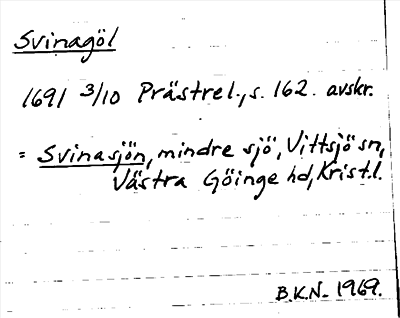 Svinagöl
1691 3/10 Prästrel., s. 162. avskr.
= Svinasjön, mindre sjö, Vittsjö sn,
Västra Göinge hd, Krist.l.
B.K.N. 1969.